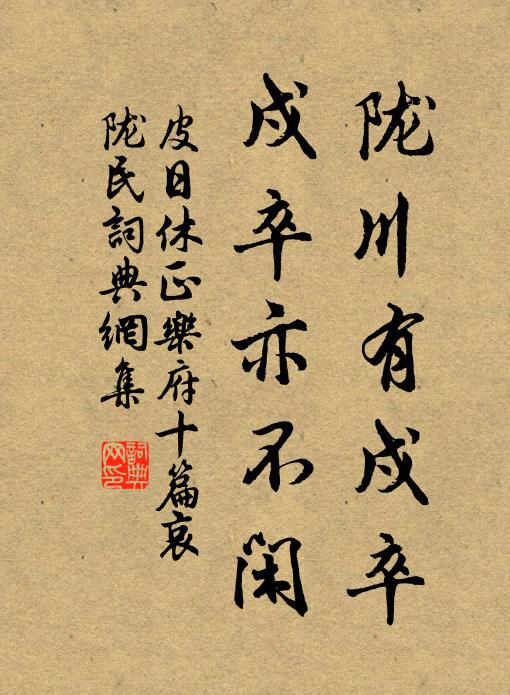 陇川有戍卒
戍卒亦不闲
皮日休正樂府十篇哀
陇民詞典網集
詞典网印